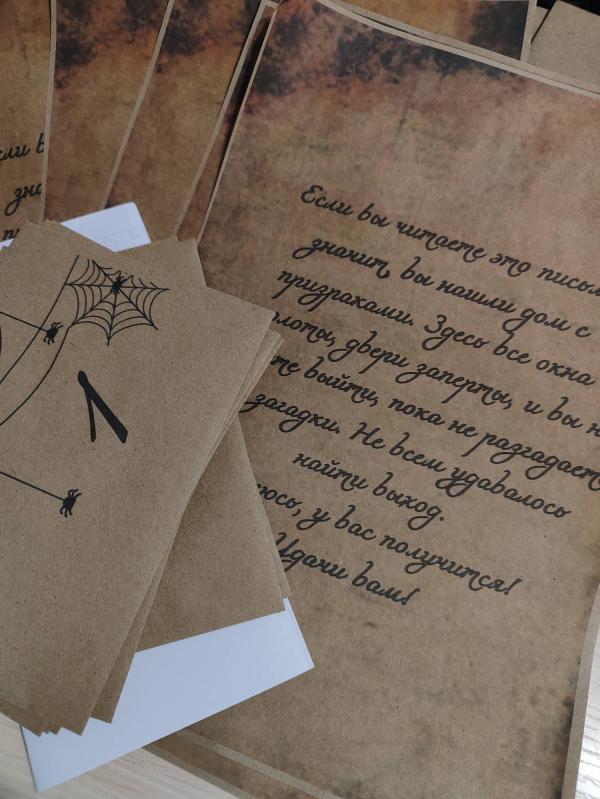 Если вы читаете это
значит, вы нашли дом с
призраками. Здесь все окна
двери заперты, и вы
выйти, пока не
загадки. Не всем удавалось
найти выход.
у вас получится!
Удачи вам!